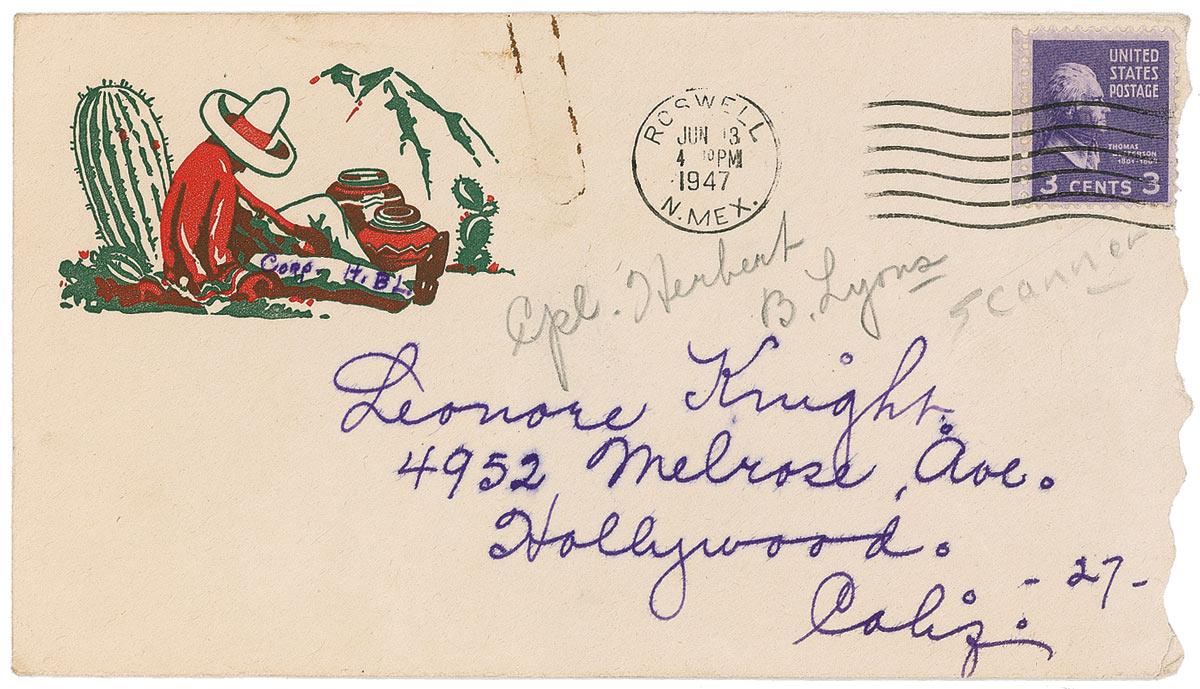 ROSWELL
JUN 13
4 PM
1947
N. MEX.
UNITED
STATES
POSTAGE
THOMAS
JEFFERSON
3 CENTS 3
Corp. H. B. L.
Cpl. Herbert
B. Lyons
scanner
Leonore Knight.
4952, Melrose, Ave.
Hollywood.
- 27 -
Calif: